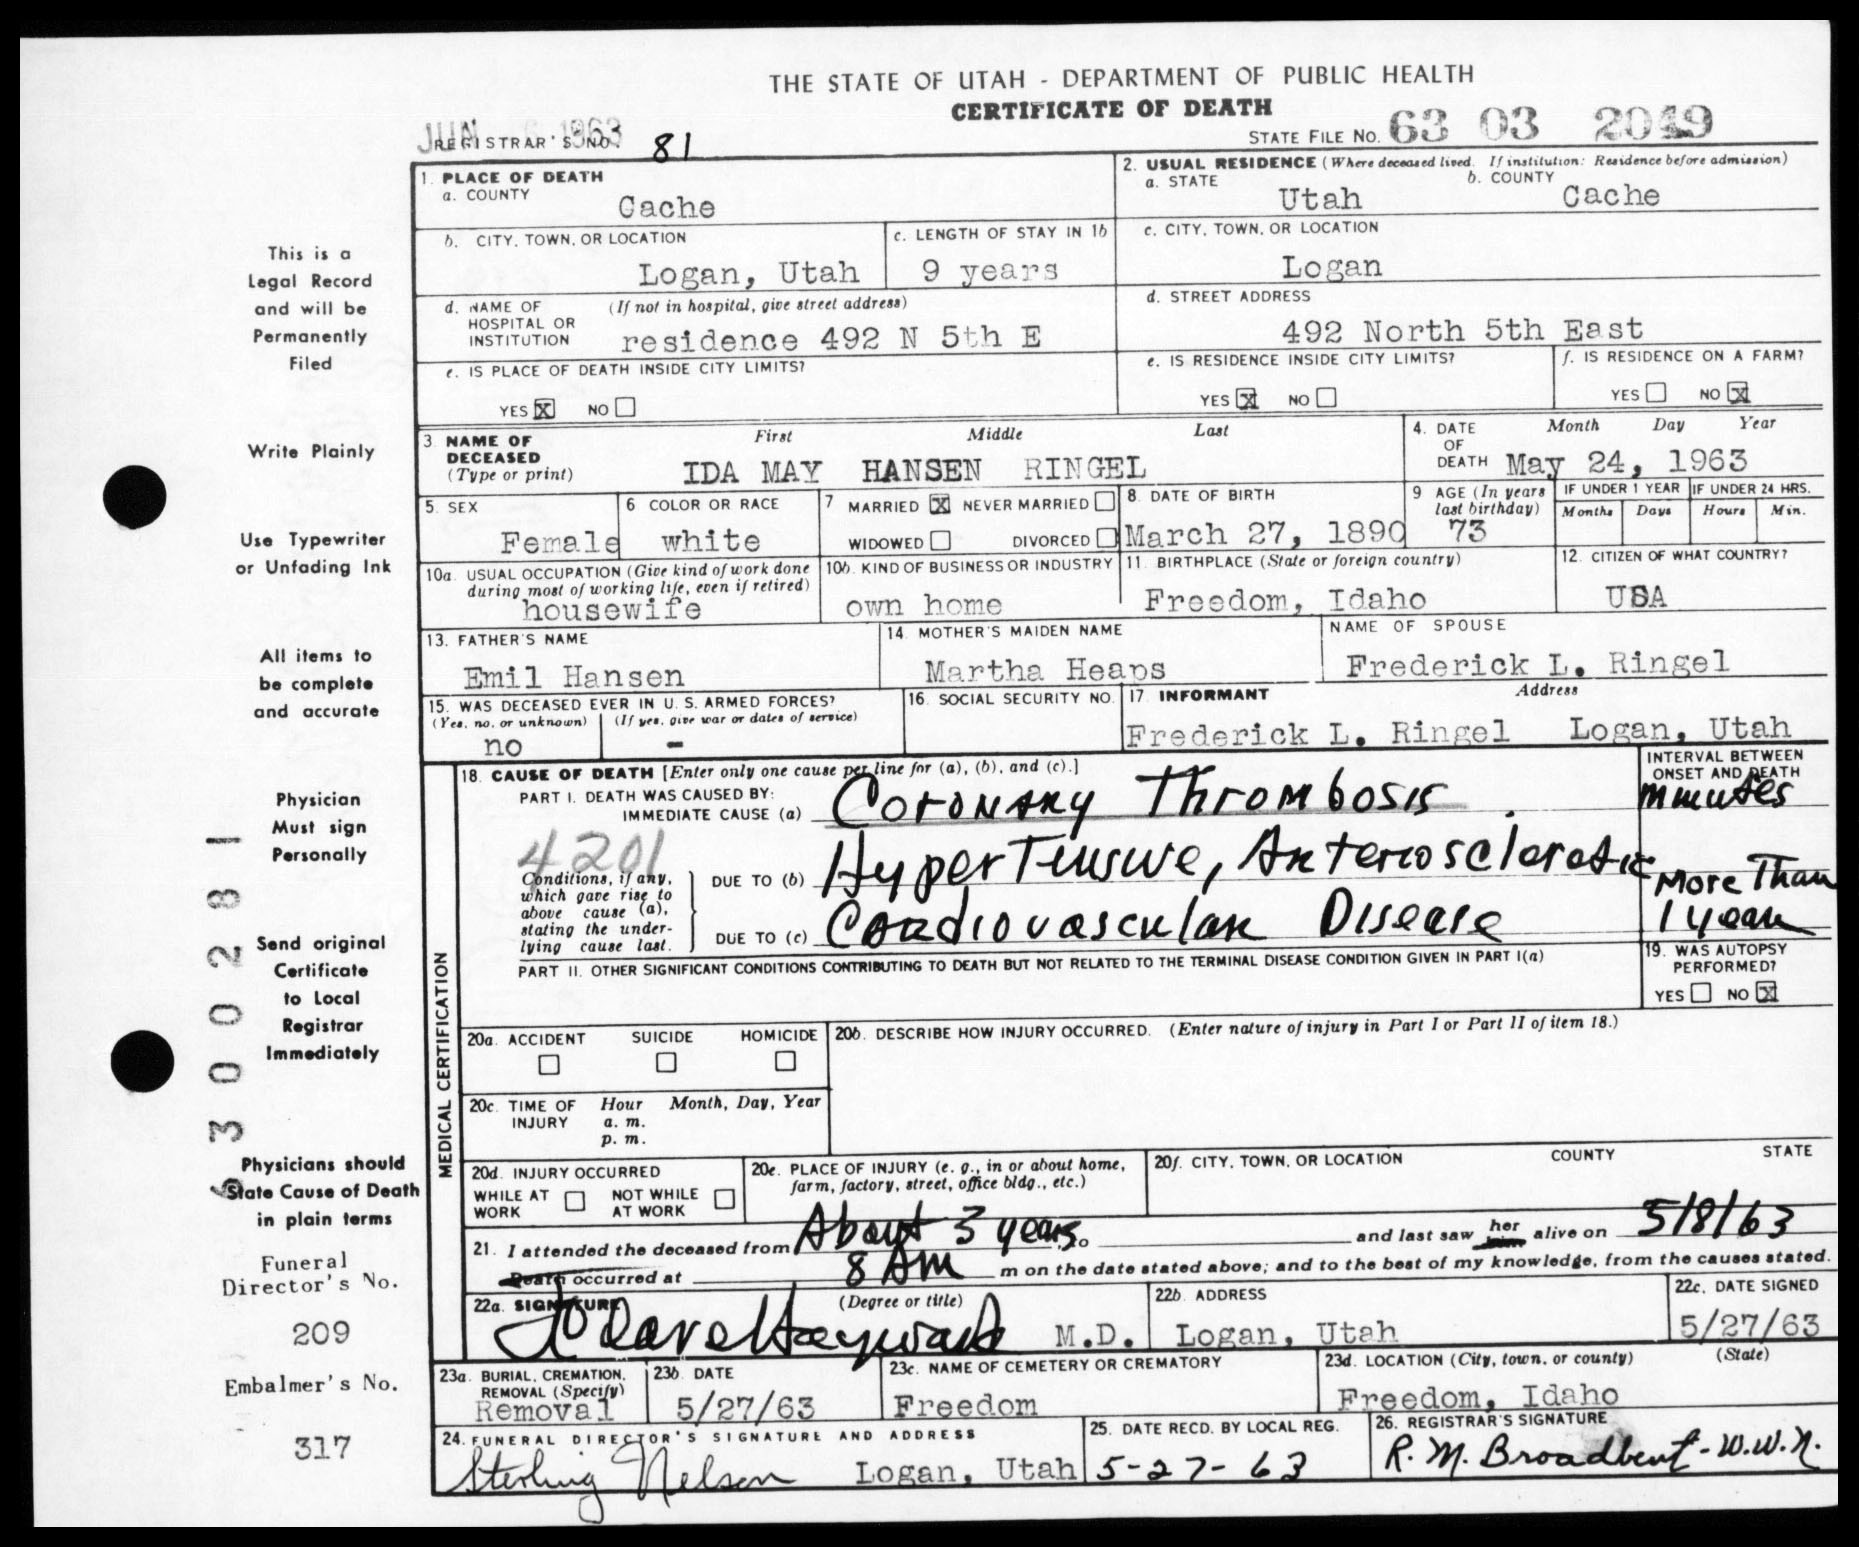 THE STATE OF UTAH - DEPARTMENT OF PUBLIC HEALTH
CERTIFICATE OF DEATH
JUN 6 1963
REGISTRAR'S NO. 81
STATE FILE NO. 63 03 2049
1. PLACE OF DEATH
a. COUNTY
Cache
2. USUAL RESIDENCE (Where deceased lived. If institution: Residence before admission)
a. STATE Utah b. COUNTY Cache
b. CITY, TOWN, OR LOCATION
Logan, Utah
c. LENGTH OF STAY IN 1b
9 years
c. CITY, TOWN, OR LOCATION
Logan
d. NAME OF HOSPITAL OR INSTITUTION (If not in hospital, give street address)
residence 492 N 5th E
d. STREET ADDRESS
492 North 5th East
e. IS PLACE OF DEATH INSIDE CITY LIMITS?
YES X NO
e. IS RESIDENCE INSIDE CITY LIMITS?
YES X NO
f. IS RESIDENCE ON A FARM?
YES NO X
3. NAME OF DECEASED (Type or print)
First Middle Last
IDA MAY HANSEN RINGEL
4. DATE OF DEATH
Month Day Year
May 24, 1963
5. SEX
Female
6 COLOR OR RACE
white
7 MARRIED X NEVER MARRIED
WIDOWED DIVORCED
8. DATE OF BIRTH
March 27, 1890
9 AGE (In years last birthday)
73
IF UNDER 1 YEAR
Months Days
IF UNDER 24 HRS.
Hours Min.
10a. USUAL OCCUPATION (Give kind of work done during most of working life, even if retired)
housewife
10b. KIND OF BUSINESS OR INDUSTRY
own home
11. BIRTHPLACE (State or foreign country)
Freedom, Idaho
12. CITIZEN OF WHAT COUNTRY?
USA
13. FATHER'S NAME
Emil Hansen
14. MOTHER'S MAIDEN NAME
Martha Heaps
NAME OF SPOUSE
Frederick L. Ringel
15. WAS DECEASED EVER IN U. S. ARMED FORCES?
(Yes, no, or unknown) (If yes, give war or dates of service)
no -
16. SOCIAL SECURITY NO.
17. INFORMANT Address
Frederick L. Ringel Logan, Utah
MEDICAL CERTIFICATION
18. CAUSE OF DEATH [Enter only one cause per line for (a), (b), and (c).]
PART I. DEATH WAS CAUSED BY:
IMMEDIATE CAUSE (a) Coronary Thrombosis
INTERVAL BETWEEN ONSET AND DEATH
minutes
4201
Conditions, if any, which gave rise to above cause (a), stating the underlying cause last.
DUE TO (b) Hypertensive, Arteriosclerotic
DUE TO (c) Cardiovascular Disease
More Than
1 year
PART II. OTHER SIGNIFICANT CONDITIONS CONTRIBUTING TO DEATH BUT NOT RELATED TO THE TERMINAL DISEASE CONDITION GIVEN IN PART I(a)
19. WAS AUTOPSY PERFORMED?
YES NO X
20a. ACCIDENT SUICIDE HOMICIDE
20b. DESCRIBE HOW INJURY OCCURRED. (Enter nature of injury in Part I or Part II of item 18.)
20c. TIME OF INJURY Hour Month, Day, Year
a. m.
p. m.
20d. INJURY OCCURRED
WHILE AT WORK NOT WHILE AT WORK
20e. PLACE OF INJURY (e. g., in or about home, farm, factory, street, office bldg., etc.)
20f. CITY, TOWN, OR LOCATION COUNTY STATE
21. I attended the deceased from About 3 years to and last saw her him alive on 5/8/63
Death occurred at 8 AM m on the date stated above; and to the best of my knowledge, from the causes stated.
22a. SIGNATURE (Degree or title)
Hayward M.D.
22b. ADDRESS
Logan, Utah
22c. DATE SIGNED
5/27/63
23a. BURIAL, CREMATION, REMOVAL (Specify)
Removal
23b. DATE
5/27/63
23c. NAME OF CEMETERY OR CREMATORY
Freedom
23d. LOCATION (City, town, or county) (State)
Freedom, Idaho
24. FUNERAL DIRECTOR'S SIGNATURE AND ADDRESS
Sterling Nelson Logan, Utah
25. DATE RECD. BY LOCAL REG.
5-27-63
26. REGISTRAR'S SIGNATURE
R. M. Broadbent - W.W.N.
This is a
Legal Record
and will be
Permanently
Filed
Write Plainly
Use Typewriter
or Unfading Ink
All items to
be complete
and accurate
Physician
Must sign
Personally
Send original
Certificate
to Local
Registrar
Immediately
Physicians should
State Cause of Death
in plain terms
Funeral
Director's No.
209
Embalmer's No.
317